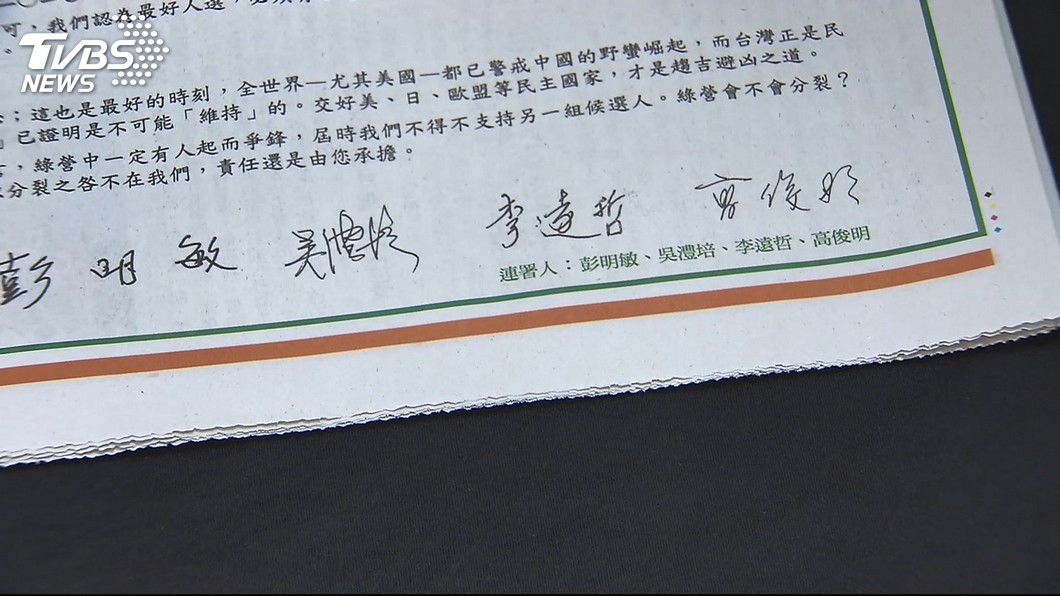 可，我們認為最好人選，
TVBS
NEWS
；這也是最好的時刻，全世界—尤其美國—都已警戒中國的野蠻崛起，而台灣正是民
」已證明是不可能「維持」的。交好美、日、歐盟等民主國家，才是趨吉避凶之道。
，綠營中一定有人起而爭鋒，屆時我們不得不支持另一組候選人。綠營會不會分裂？
分裂之咎不在我們，責任還是由您承擔。
彭明敏 吳澧培 李遠哲 高俊明
連署人：彭明敏、吳澧培、李遠哲、高俊明